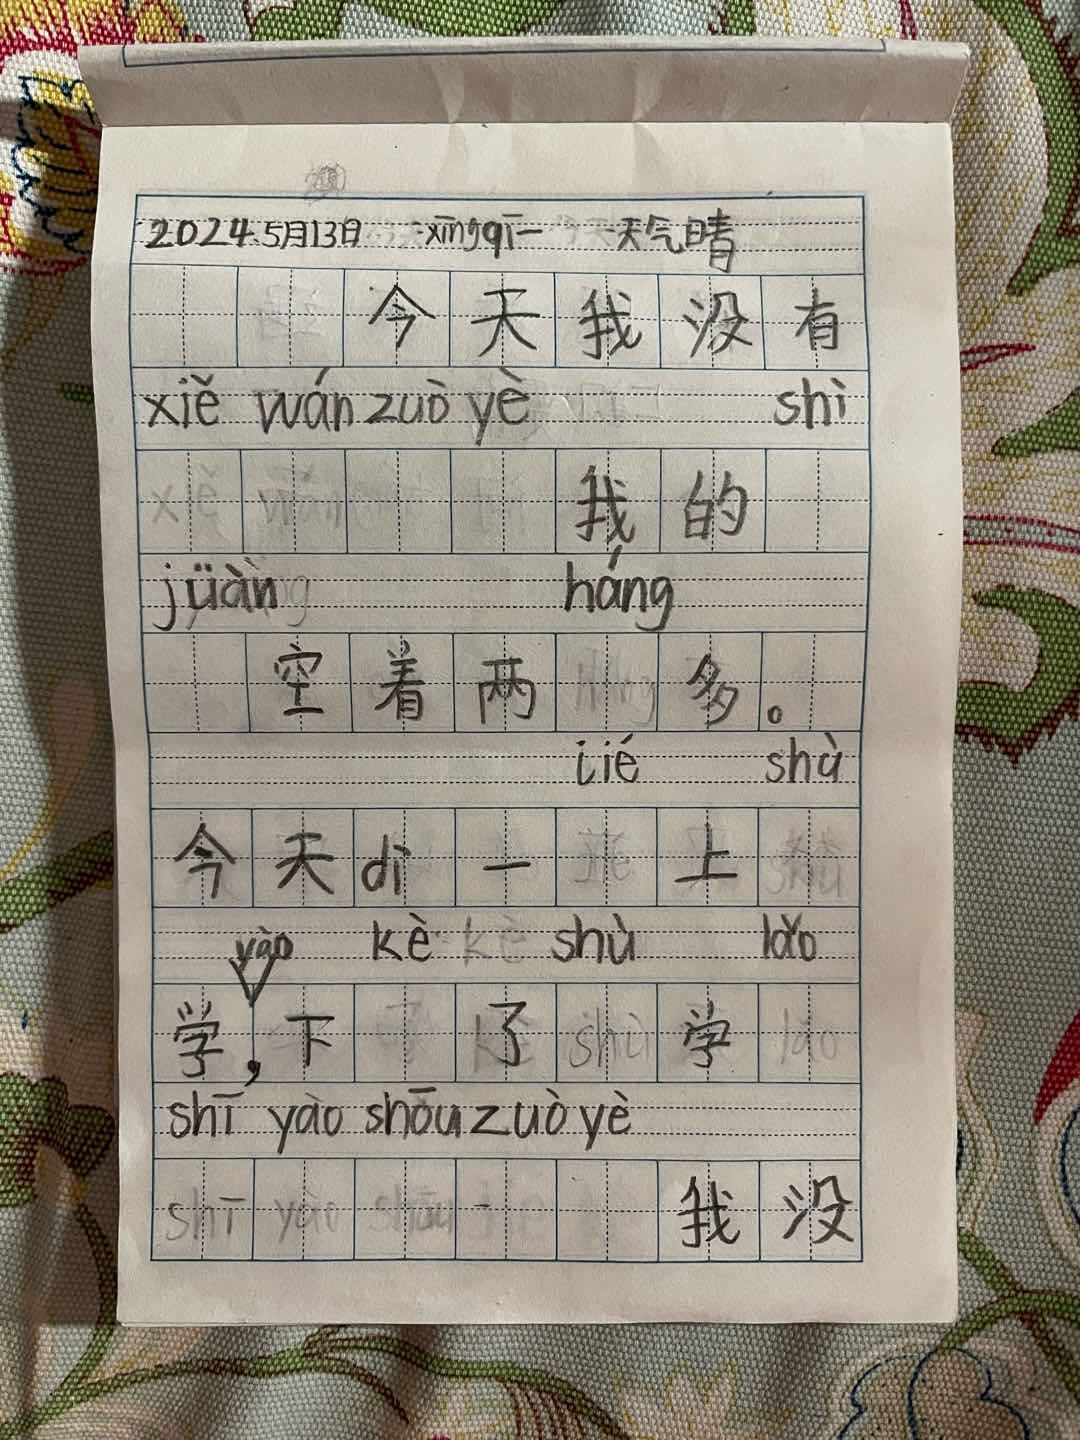 2024.5月13日 xīngqī一 天气晴
今天我没有
xiě wán zuò yè shì
我的
jüàn háng
空着两多。
jié shù
今天dì一上
yào kè shù lǎo
学，下了学
shī yào shōu zuò yè
我没